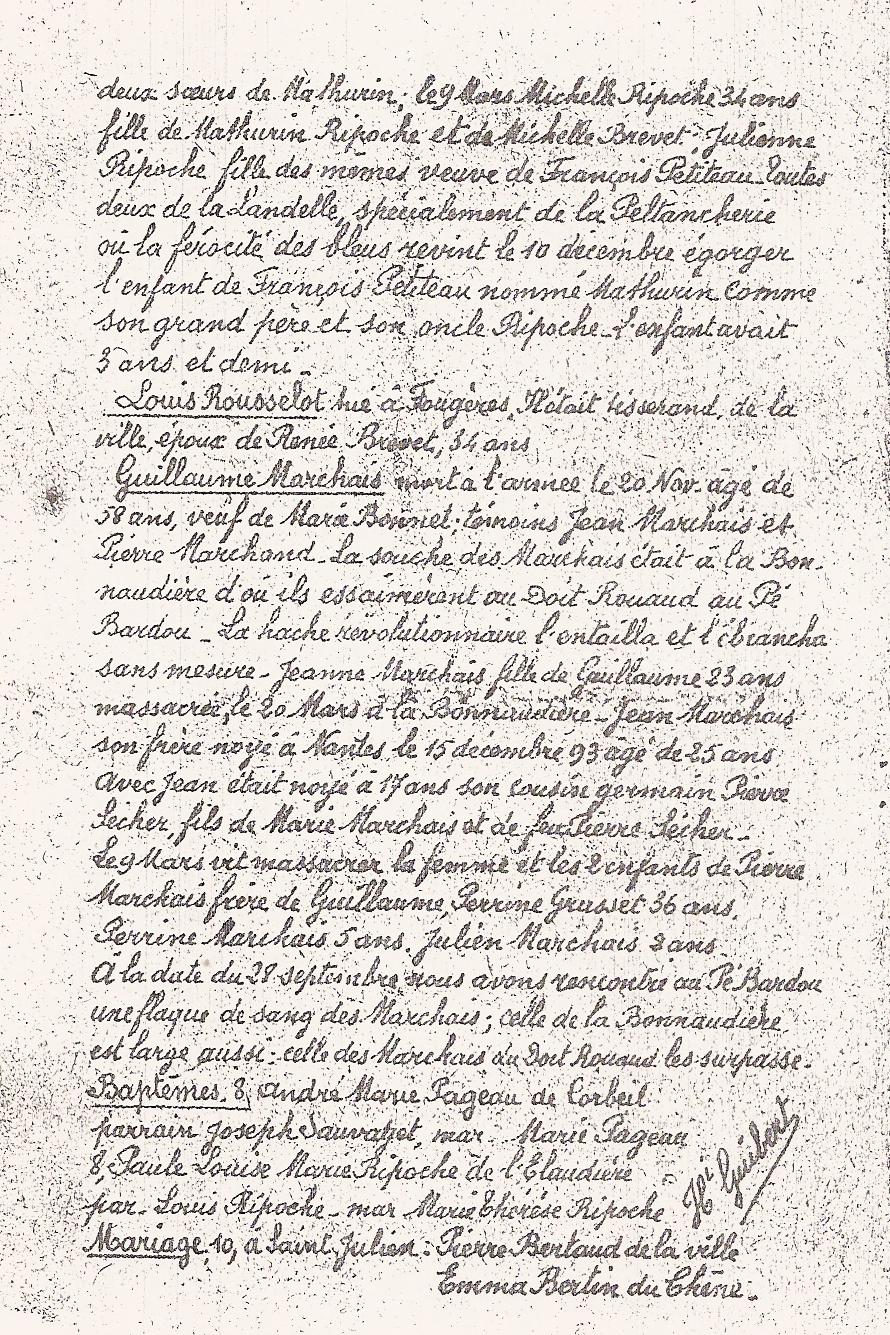 deux sœurs de Mathurin; le 9 Mars Michelle Ripoche 34 ans
fille de Mathurin Ripoche et de Michelle Brevet; Julienne
Ripoche fille des mêmes veuve de François Petiteau. Toutes
deux de la Landelle, spécialement de la Peltancherie
où la férocité des bleus revint le 10 décembre égorger
l'enfant de François Petiteau nommé Mathurin comme
son grand père et son oncle Ripoche_ L'enfant avait
3 ans et demi_
Louis Rousselot tué à Fougères. Il était tisserand, de la
ville, époux de Renée Brevet, 34 ans
Guillaume Marchais mort à l'armée le 20 Nov. âgé de
58 ans, veuf de Marie Bonnet; témoins Jean Marchais et
Pierre Marchand_ La souche des Marchais était à la Bon-
naudière d'où ils essaimèrent au Doit Rouaud au Pé
Bardou_ La hache révolutionnaire l'entailla et l'ébrancha
sans mesure_ Jeanne Marchais, fille de Guillaume 23 ans
massacrée, le 20 Mars à la Bonnaudière_ Jean Marchais
son frère noyé à Nantes le 15 décembre 93 âgé de 25 ans
Avec Jean était noyé à 17 ans son cousin germain Pierre
Sécher, fils de Marie Marchais et de feu Pierre Sécher_
Le 9 Mars vit massacrer la femme et les 2 enfants de Pierre
Marchais frère de Guillaume, Perrine Grasset 36 ans,
Perrine Marchais 5 ans, Julien Marchais 2 ans
À la date du 28 septembre nous avons rencontré au Pé Bardou
une flaque de sang des Marchais; celle de la Bonnaudière
est large aussi: celle des Marchais du Doit Rouaud les surpasse.
Baptêmes. 8, André Marie Pageau de Corbeil
parrain Joseph Sauvaget, mar_ Marie Pageau
8, Paule Louise Marie Ripoche de l'Élaudière
par_ Louis Ripoche_ mar Marie Thérèse Ripoche
Hri Guibert
Mariage, 10, à Saint Julien: Pierre Bertaud de la ville
Emma Bertin du Chêne_